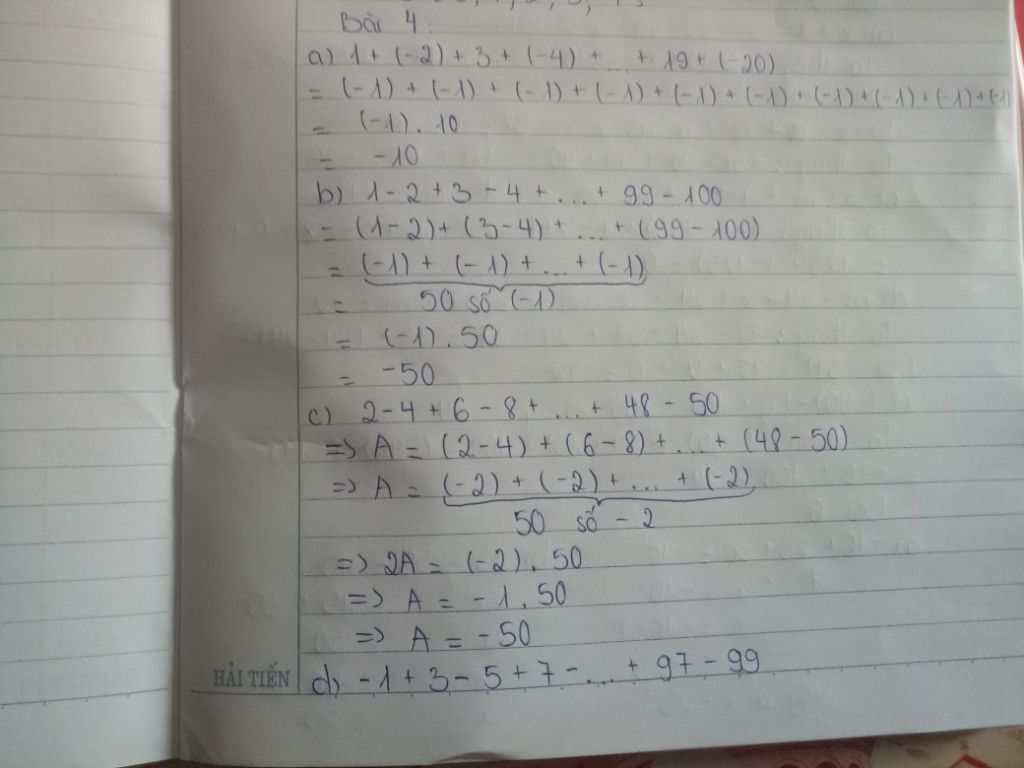 Bài 4:
a) 1 + (-2) + 3 + (-4) + ... + 19 + (-20)
= (-1) + (-1) + (-1) + (-1) + (-1) + (-1) + (-1) + (-1) + (-1) + (-1)
= (-1) . 10
= -10
b) 1 - 2 + 3 - 4 + ... + 99 - 100
= (1 - 2) + (3 - 4) + ... + (99 - 100)
= (-1) + (-1) + ... + (-1)
= 50 số (-1)
= (-1) . 50
= -50
c) 2 - 4 + 6 - 8 + ... + 48 - 50
=> A = (2 - 4) + (6 - 8) + ... + (48 - 50)
=> A = (-2) + (-2) + ... + (-2)
50 số -2
=> 2A = (-2) . 50
=> A = -1 . 50
=> A = -50
HẢI TIẾN
d) -1 + 3 - 5 + 7 - ... + 97 - 99